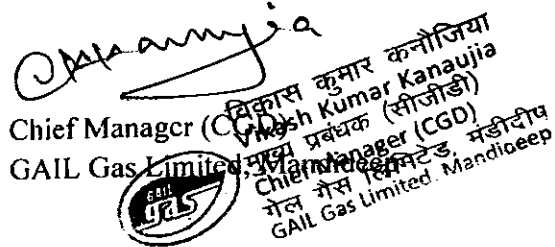 Chief Manager (CGD)
GAIL Gas Limited, Mandideep
विकास कुमार कनौजिया
Vikash Kumar Kanaujia
मुख्य प्रबंधक (सीजीडी)
Chief Manager (CGD)
गेल गैस लिमिटेड, मंडीदीप
GAIL Gas Limited. Mandideep
GAIL
gas